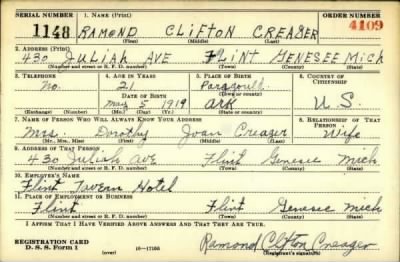 SERIAL NUMBER 1. NAME (Print) ORDER NUMBER
1148 RAMOND CLIFTON CREAGER 4109
(First) (Middle) (Last)
2. ADDRESS (Print)
430 JULIAH AVE FLINT GENESEE MICH
(Number and street or R. F. D. number) (Town) (County) (State)
3. TELEPHONE 4. AGE IN YEARS 5. PLACE OF BIRTH 6. COUNTRY OF CITIZENSHIP
No. 21 Paragould
DATE OF BIRTH (Town or county)
May 5 1919 Ark U.S.
(Exchange) (Number) (Mo.) (Day) (Yr.) (State or country)
7. NAME OF PERSON WHO WILL ALWAYS KNOW YOUR ADDRESS 8. RELATIONSHIP OF THAT PERSON
Mrs. Dorothy Joan Creager Wife
(Mr., Mrs., Miss) (First) (Middle) (Last)
9. ADDRESS OF THAT PERSON
430 Juliah Ave Flint Genesee Mich
(Number and street or R. F. D. number) (Town) (County) (State)
10. EMPLOYER'S NAME
Flint Tavern Hotel
11. PLACE OF EMPLOYMENT OR BUSINESS
Flint Flint Genesee Mich
(Number and street or R. F. D. number) (Town) (County) (State)
I AFFIRM THAT I HAVE VERIFIED ABOVE ANSWERS AND THAT THEY ARE TRUE.
REGISTRATION CARD
D. S. S. Form 1 (over) 16—17105 Ramond Clifton Creager
(Registrant's signature)